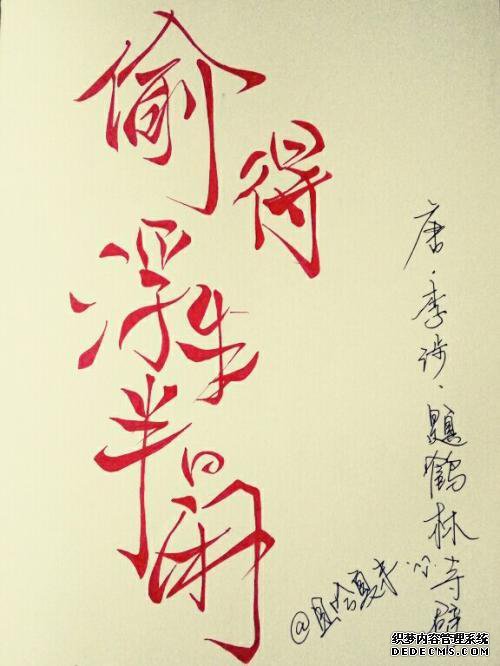 偷得
浮生
半日闲
唐·李涉·題鶴林寺壁
织梦内容管理系统
DEDECMS.COM